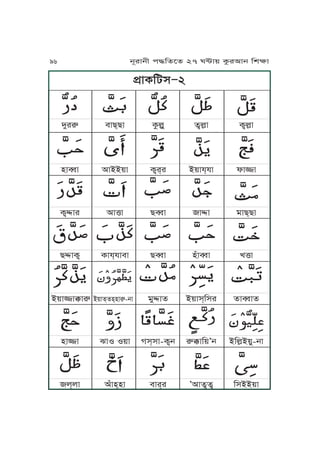 ৯৬ নূরানী পদ্ধতিতে ২৭ ঘণ্টায় কুরআন শিক্ষা
প্রাকটিস-২
قَلَّ طَلَّ كُلُّ بَثَّ دُرُّ
দুররু বাছ্ছা কুল্লু ত্বল্লা ক্বল্লা
فَجَّ يَذَّ قَرَّ أَىَّ حَبَّ
হাব্বা আইইয়া ক্বর্র ইয়ায্যা ফাজ্জা
ثَمَّ جَدَّ صَبَّ اَتَّ قَدَّرَ
ক্বদ্দার আত্তা ছব্বা জাদ্দা মাছ্ছা
خَتَّ حَبَّ صَبَّ كَذَّبَ صَدَّقَ
ছদ্দাক্ব কায্যাবা ছব্বা হাঁব্বা খত্তা
تَبَّتْ يَسِّرْ مُدَّتْ يَطَّهَّرُوْنَ يَذَّكَّرُ
ইয়াজ্জাক্কারু ইয়াত্বত্বহ্হারূ-না মুদ্দাত ইয়াস্সির তাব্বাত
عِلِّيُّوْنَ رُكَّعً غَسَّاقًا وَزَّ حَجَّ
হাজ্জা ঝাও ওয়া গস্সা-ক্বন রুক্কায়ি'ন ইল্লিইয়ূ-না
سِىَّ عَطُّ بَرَّ اَحَّ ظَلَّ
জল্লা আঁহ্হা বার্র 'আত্বত্বু সিইইয়া